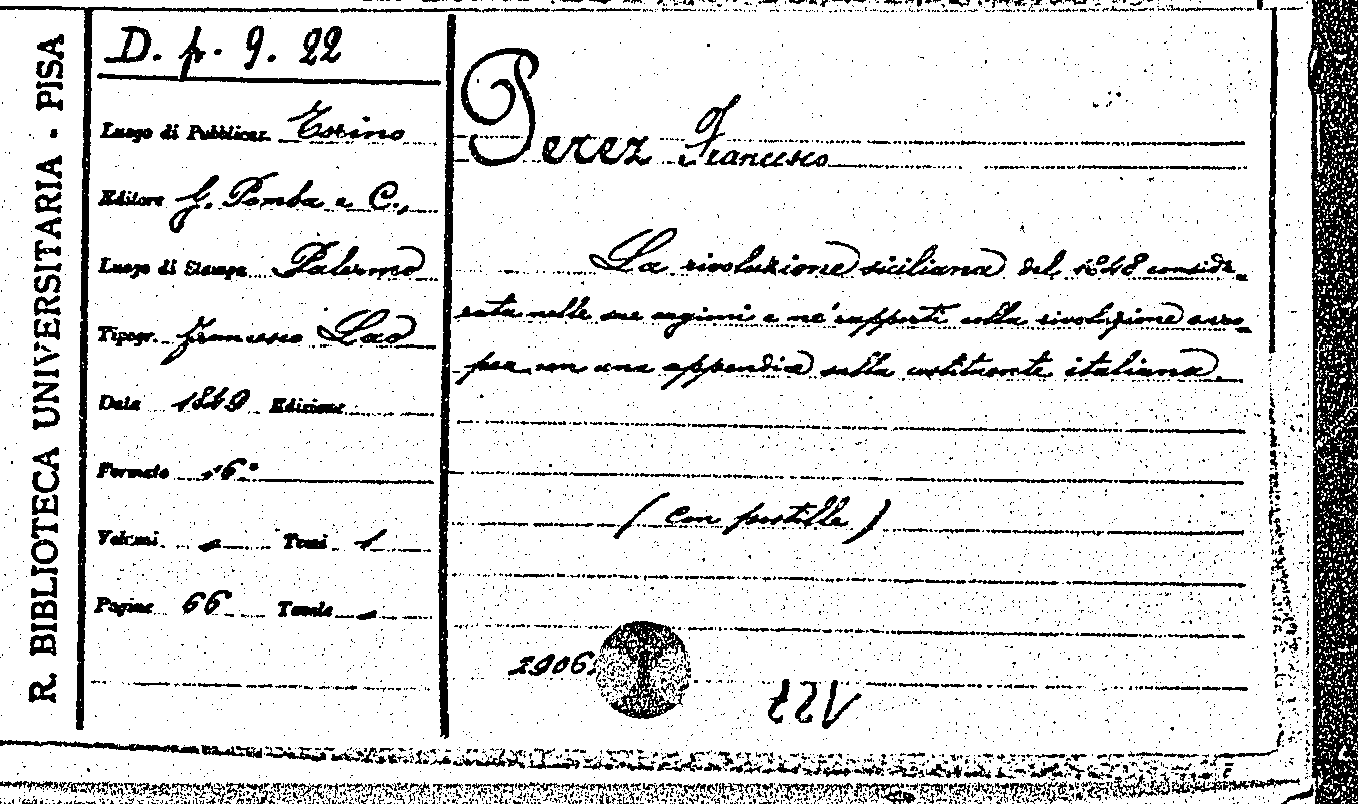 R. BIBLIOTECA UNIVERSITARIA - PISA
D. p. 9. 22
Luogo di Pubblicaz. Torino
Editore G. Pomba e C.,
Luogo di Stampa Palermo
Tipogr. Francesco Lao
Data 1849 Edizione
Formato 16°
Volumi - Tomi 1
Pagine 66 Tavole -
Perez Francesco
La rivoluzione siciliana del 1848 conside-
rata nelle sue cagioni e ne' rapporti colla rivoluzione euro-
pea con una appendice sulla costituente italiana.
(con postille)
2906.